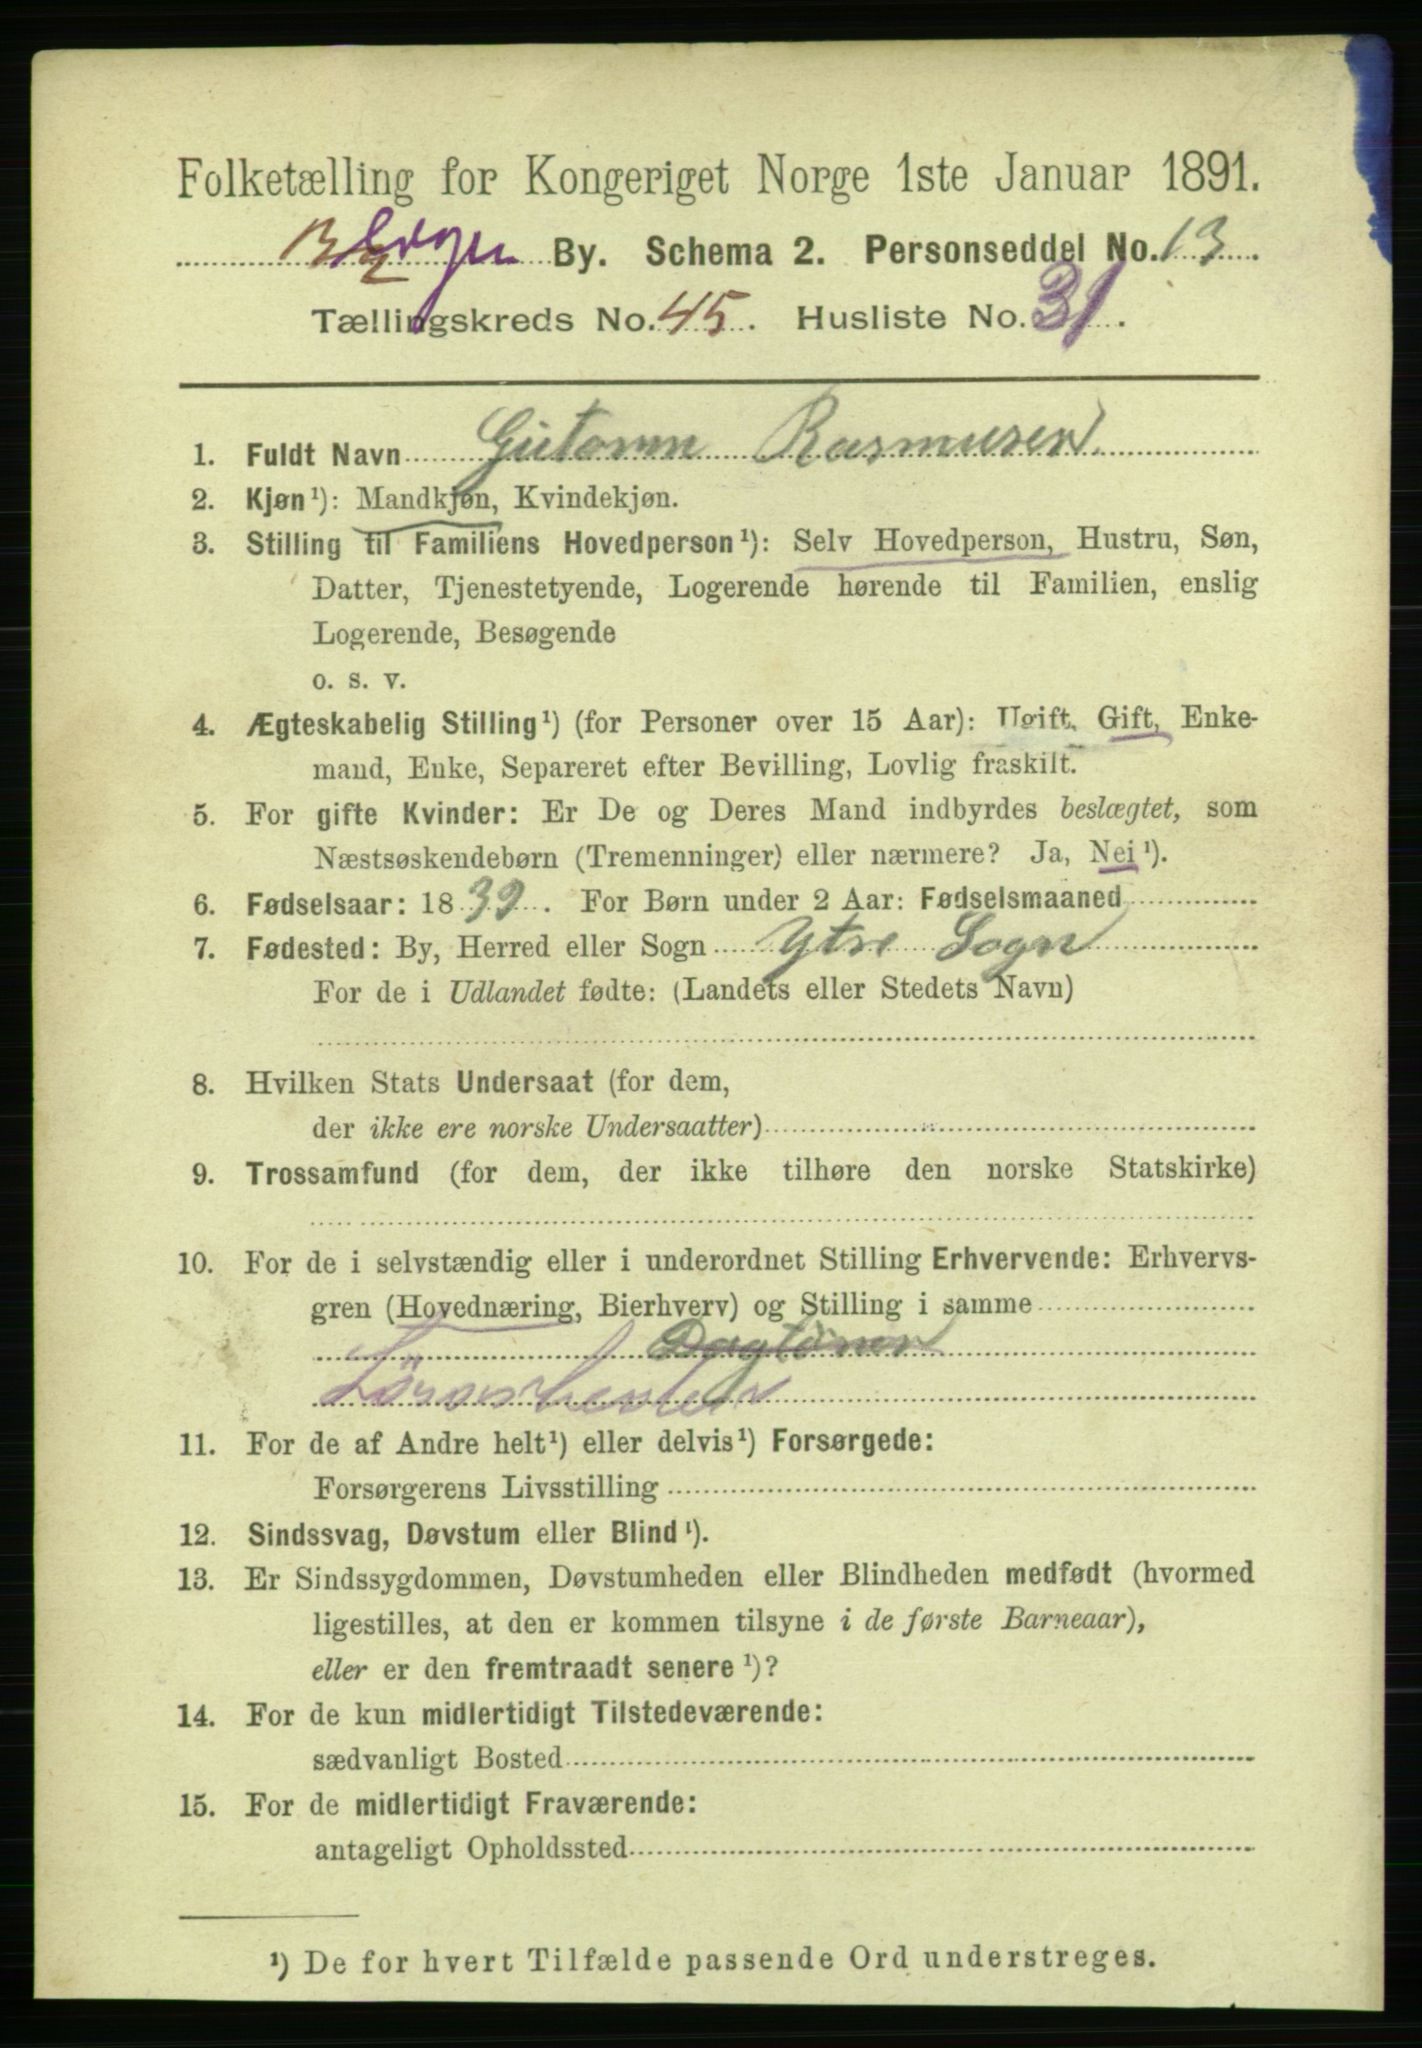 Folketælling for Kongeriget Norge 1ste Januar 1891.
Bergen By. Schema 2. Personseddel No. 13.
Tællingskreds No. 45. Husliste No. 31.
1. Fuldt Navn Gutorm Rasmusen
2. Kjøn¹): Mandkjøn, Kvindekjøn.
3. Stilling til Familiens Hovedperson¹): Selv Hovedperson, Hustru, Søn,
Datter, Tjenestetyende, Logerende hørende til Familien, enslig
Logerende, Besøgende
o. s. v.
4. Ægteskabelig Stilling¹) (for Personer over 15 Aar): Ugift, Gift, Enke-
mand, Enke, Separeret efter Bevilling, Lovlig fraskilt.
5. For gifte Kvinder: Er De og Deres Mand indbyrdes beslægtet, som
Næstsøskendebørn (Tremenninger) eller nærmere? Ja, Nei¹).
6. Fødselsaar: 1839. For Børn under 2 Aar: Fødselsmaaned
7. Fødested: By, Herred eller Sogn Ytre Sogn
For de i Udlandet fødte: (Landets eller Stedets Navn)
8. Hvilken Stats Undersaat (for dem,
der ikke ere norske Undersaatter)
9. Trossamfund (for dem, der ikke tilhøre den norske Statskirke)
10. For de i selvstændig eller i underordnet Stilling Erhvervende: Erhvervs-
gren (Hovednæring, Bierhverv) og Stilling i samme
Dagløner
11. For de af Andre helt¹) eller delvis¹) Forsørgede:
Forsørgerens Livsstilling
12. Sindssvag, Døvstum eller Blind¹).
13. Er Sindssygdommen, Døvstumheden eller Blindheden medfødt (hvormed
ligestilles, at den er kommen tilsyne i de første Barneaar),
eller er den fremtraadt senere¹)?
14. For de kun midlertidigt Tilstedeværende:
sædvanligt Bosted
15. For de midlertidigt Fraværende:
antageligt Opholdssted
¹) De for hvert Tilfælde passende Ord understreges.